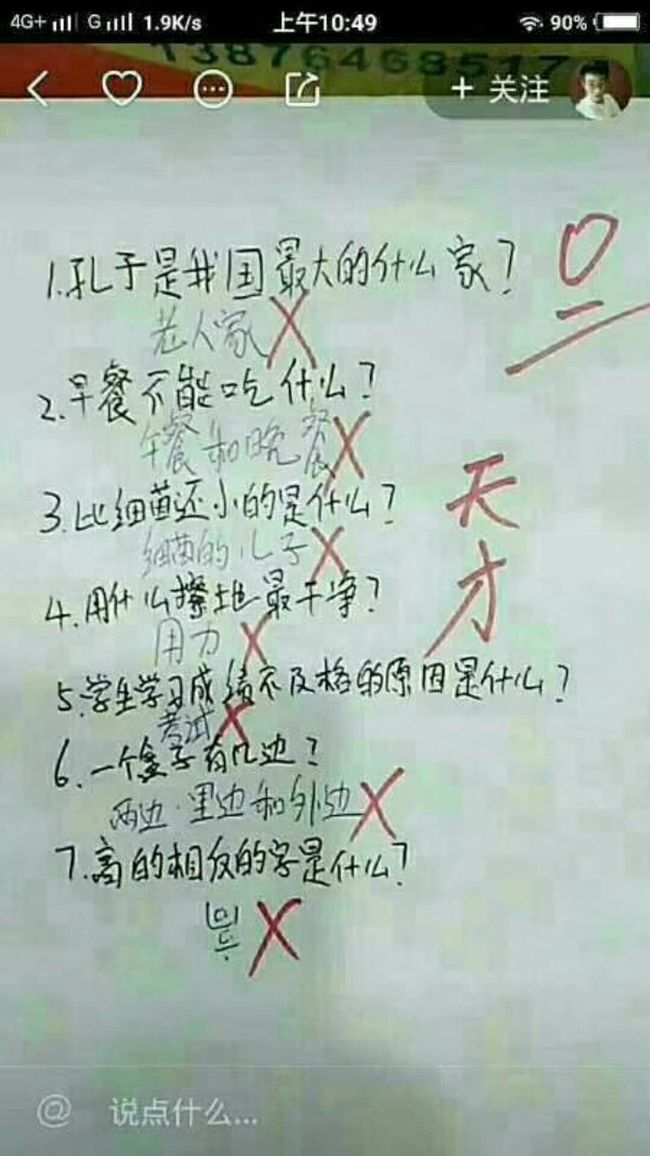 4G+ G 1.9K/s 上午10:49 90%
13876468517
+ 关注
0
1.孔子是我国最大的什么家?
老人家
2.早餐不能吃什么?
午餐和晚餐
3.比细菌还小的是什么?
细菌的儿子
天才
4.用什么擦地最干净?
用力
5.学生学习成绩不及格的原因是什么?
考试
6.一个盒子有几边?
两边.里边和外边
7.高的相反的字是什么?
@ 说点什么...